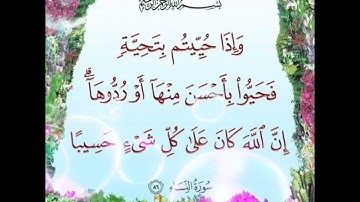 بِسْمِ اللَّهِ الرَّحْمَٰنِ الرَّحِيمِ
وَإِذَا حُيِّيتُم بِتَحِيَّةٖ
فَحَيُّواْ بِأَحْسَنَ مِنْهَآ أَوْ رُدُّوهَآۗ
إِنَّ ٱللَّهَ كَانَ عَلَىٰ كُلِّ شَيْءٍ حَسِيبًا
سُورَةُ النِّسَاءِ ٨٦